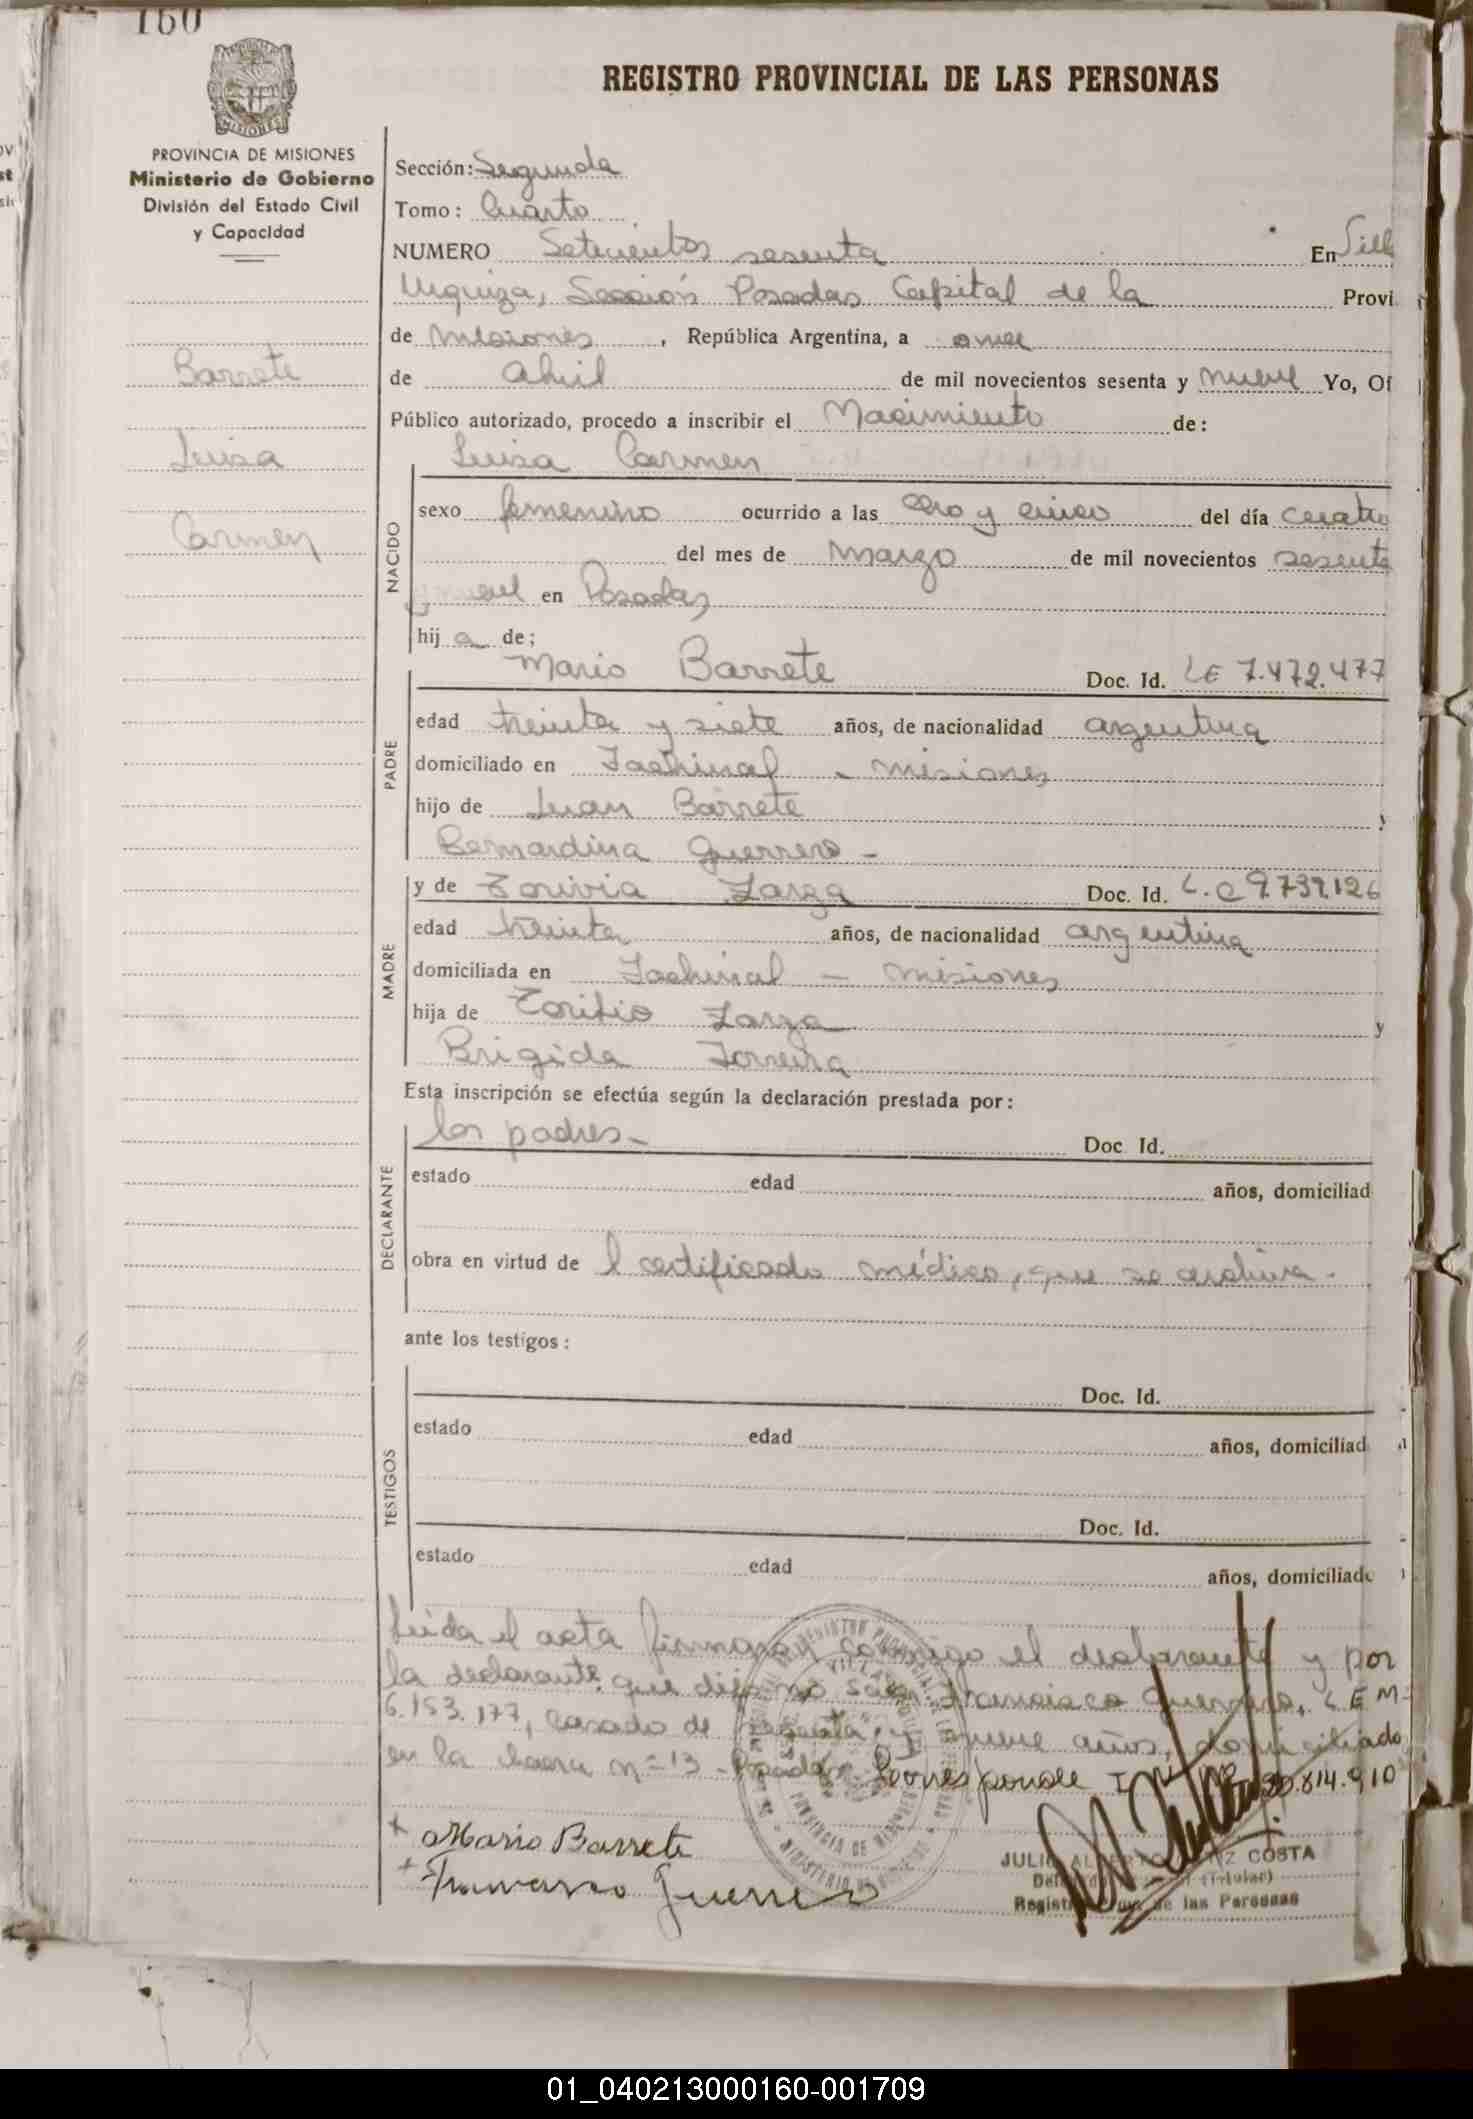 160
REGISTRO PROVINCIAL DE LAS PERSONAS
MISIONES
PROVINCIA DE MISIONES
Ministerio de Gobierno
División del Estado Civil
y Capacidad
Barrete
Luisa
Carmen
Sección: Segunda
Tomo: Cuarto
NUMERO Setecientos sesenta En Vill
Urquiza, Sección Posadas Capital de la Provi
de Misiones, República Argentina, a once
de Abril de mil novecientos sesenta y nueve Yo, Of
Público autorizado, procedo a inscribir el Nacimiento de:
Luisa Carmen
NACIDO
sexo femenino ocurrido a las cero y cinco del día cuatro
del mes de Marzo de mil novecientos sesenta
y nueve en Posadas
hija de;
Mario Barrete Doc. Id. LE 7.472.477
PADRE
edad treinta y siete años, de nacionalidad argentina
domiciliado en - Misiones
hijo de Juan Barrete y
Bernardina Guerrero -
y de Toribia Zarza Doc. Id. L.C 9.739.126
MADRE
edad treinta años, de nacionalidad argentina
domiciliada en - Misiones
hija de Toribio Zarza y
Brigida
Esta inscripción se efectúa según la declaración prestada por:
DECLARANTE
los padres - Doc. Id.
estado edad años, domiciliad
obra en virtud de l certificado médico, que se archiva.
ante los testigos:
TESTIGOS
Doc. Id.
estado edad años, domiciliad
Doc. Id.
estado edad años, domiciliado
Leida el acta firmaran conmigo el declarante y por
la declarante que dijo no saber Francisco Guerrero, L E M-
6.153.177, casado de sesenta y nueve años, domiciliado
en la chacra nº 13 - Posadas. Corresponde 20.814.910
+ Mario Barrete
+ Francisco Guerrero
JULIO ALBERTO COSTA
(Titular)
Registro de las Personas
01_040213000160-001709